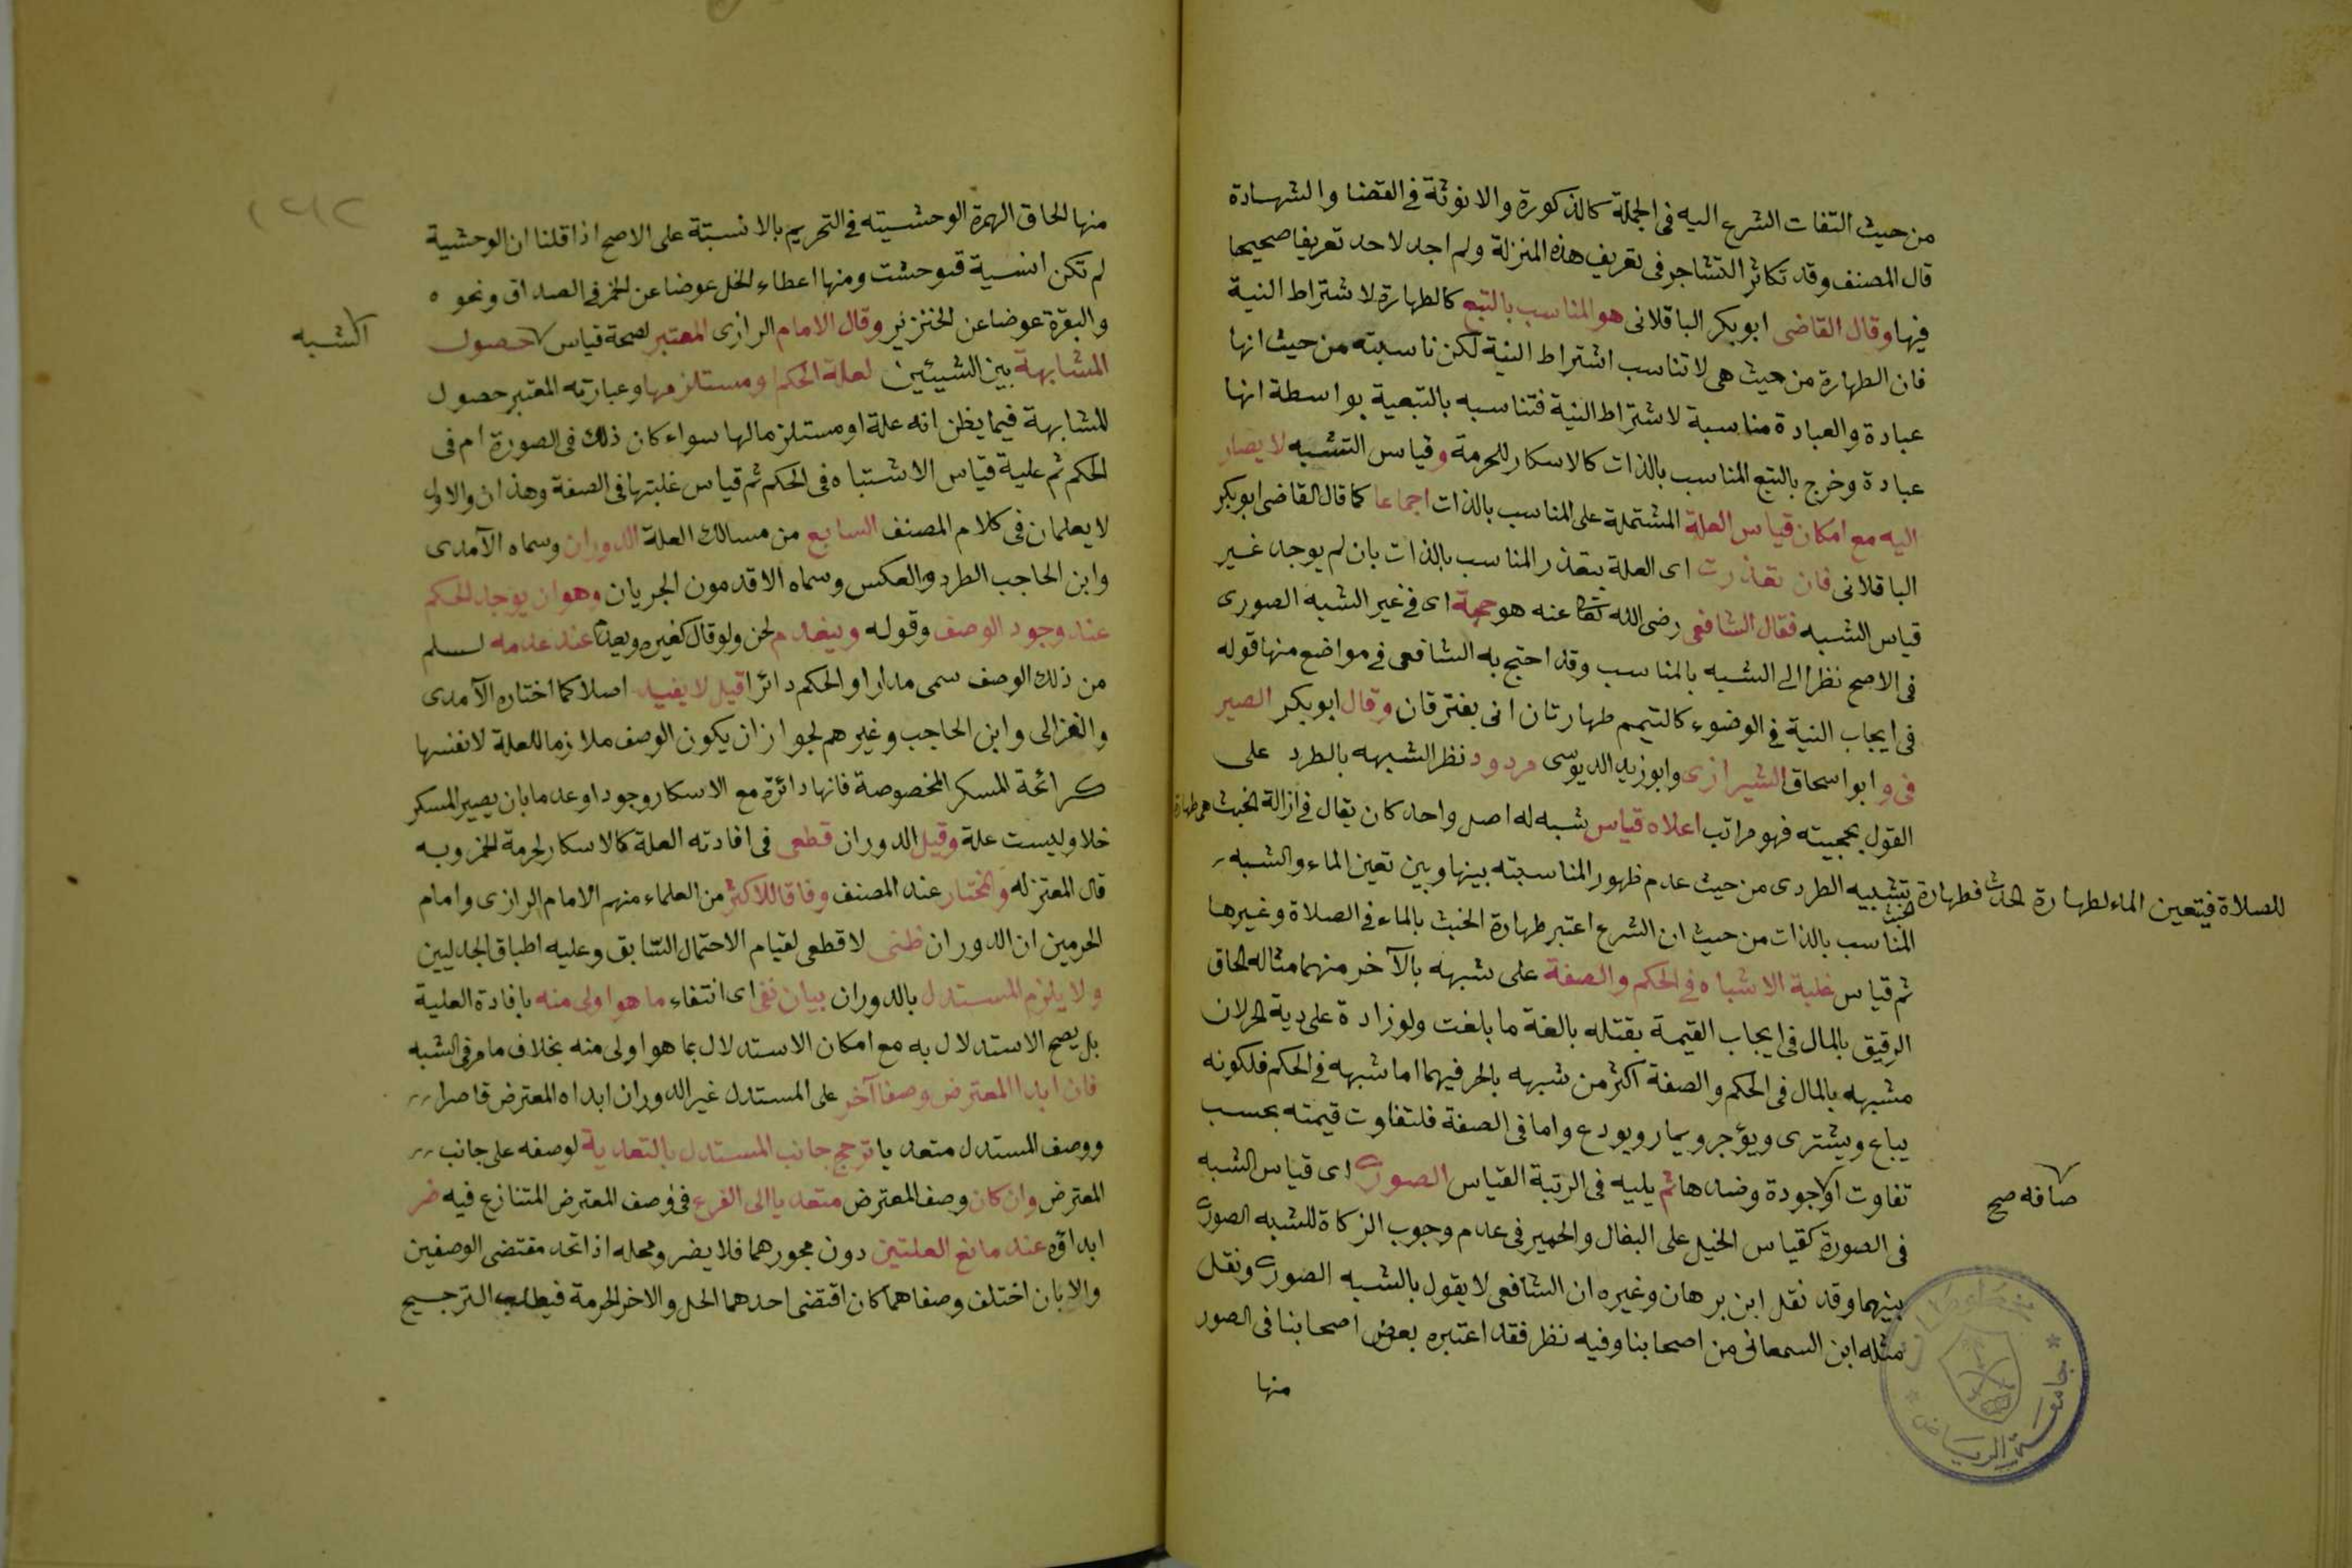 من حيث التفات الشرع اليه فى الجملة كالذكورة والانوثة فى القضا والشهادة
قال المصنف وقد تكاثر التشاجر فى تعريف هذه المنزلة ولم اجد لاحد تعريفا صحيحا
فيها وقال القاضى ابو بكر الباقلانى هو المناسب بالتبع كالطهارة لاشتراط النية
فان الطهارة من حيث هى لا تناسب اشتراط النية لكن ناسبته من حيث انها
عبادة والعبادة مناسبة لاشتراط النية فتناسبه بالتبعية بواسطة انها
عبادة وخرج بالتبع المناسب بالذات كالاسكار للحرمة وقياس الشبه لا يصار
اليه مع امكان قياس العلة المشتملة على المناسب بالذات اجماعا كما قال القاضى ابو بكر
الباقلانى فان تعذرت اى العلة بتعذر المناسب بالذات بان لم يوجد غير
قياس الشبه فقال الشافعى رضى الله تعا عنه هو حجة اى فى غير الشبه الصورى
فى الاصح نظرا الى الشبه بالمناسب وقد احتج به الشافعى فى مواضع منها قوله
فى ايجاب النية فى الوضوء كالتيمم طهارتان انى يفترقان وقال ابو بكر الصير
فى وابو اسحاق الشيرازى وابو زيد الدبوسى مردود نظر الشبهه بالطرد على
القول بحجيته فهو مراتب اعلاه قياس شبه له اصل واحد كان يقال فى ازالة الخبث هى طهارة
للصلاة فيتعين الماء لطهارة الحدث فطهارة الخبث تشبيه الطردى من حيث عدم ظهور المناسبته بينها وبين تعين الماء والشبه
المناسب بالذات من حيث ان الشرع اعتبر طهارة الخبث بالماء فى الصلاة وغيرها
ثم قياس غلبة الاشباه فى الحكم والصفة على شبهه بالآخر منهما مثاله الحاق
الرقيق بالمال فى ايجاب القيمة بقتله بالغة ما بلغت ولو زادة على دية الحر لان
مشبهه بالمال فى الحكم والصفة اكثر من شبهه بالحر فيهما اما شبهه فى الحكم فلكونه
يباع ويشترى ويؤجر ويمار ويودع واما فى الصفة فلتفاوت قيمته بحسب
تفاوت او جودة وضدها ثم يليه فى الرتبة القياس الصورى اى قياس الشبه
صافه صح
فى الصورة كقياس الخيل على البغال والحمير فى عدم وجوب الزكاة للشبه الصورى
بينهما وقد نقل ابن برهان وغيره ان الشافعى لا يقول بالشبه الصورى ونقل
مثله ابن السمعانى من اصحابنا وفيه نظر فقد اعتبره بعض اصحابنا فى الصور
منها
جامعة الرياض
منها الحاق الهرة الوحشيته فى التحريم بالانسيتة على الاصح اذا قلنا ان الوحشية
لم تكن انسية فتوحشت ومنها اعطاء الخل عوضا عن الخمر فى الصداق ونحوه
والبقرة عوضا عن الخنزير وقال الامام الرازى المعتبر لصحة قياس حصول
الشبه
المشابهة بين الشيئين لعلة الحكم او مستلزمها وعبارته المعتبر حصول
المشابهة فيما يظن انه علة او مستلزما لها سواء كان ذلك فى الصورة ام فى
الحكم ثم علية قياس الاشتباه فى الحكم ثم قياس غلبتها فى الصفة وهذان والاول
لا يعلمان فى كلام المصنف السابع من مسالك العلة الدوران وسماه الآمدى
وابن الحاجب الطرد والعكس وسماه الاقدمون الجريان وهو ان يوجد الحكم
عند وجود الوصف وقوله وينعدم لحن ولو قال كغيره ويعدم عند عدمه لسلم
من ذلك الوصف سمى مدارا والحكم دائرا قيل لا يفيد اصلا كما اختاره الآمدى
والغزالى وابن الحاجب وغيرهم لجواز ان يكون الوصف ملازما للعلة لا نفسها
كرائحة المسكر المخصوصة فانها دائرة مع الاسكار وجودا وعدما بان يصير المسكر
خلا وليست علة وقيل الدوران قطعى فى افادته العلة كالاسكار لحرمة الخمر وبه
قال المعتزله والمختار عند المصنف وفاقا للاكثر من العلماء منهم الامام الرازى وامام
الحرمين ان الدوران ظنى لا قطعى لقيام الاحتمال السابق وعليه اطباق الجدليين
ولا يلزم المستدل بالدوران بيان نفى اى انتفاء ما هو اولى منه بافادة العلية
بل يصح الاستدلال به مع امكان الاستدلال بما هو اولى منه بخلاف ما مر فى الشبه
فان ابدا المعترض وصفا آخر على المستدل غير الدوران ابداه المعترض قاصرا
ووصف المستدل متعديا ترجح جانب المستدل بالتعدية لوصفه على جانب
المعترض وان كان وصف المعترض متعديا الى الفرع فى وصف المعترض المتنازع فيه ضر
ابداؤه عند مانع العلتين دون مجوزهما فلا يضر ومحله اذا اتحد مقتضى الوصفين
والا بان اختلف وصفاهما كان اقتضى احدهما الحل والاخر الحرمة فيطلب الترجيح